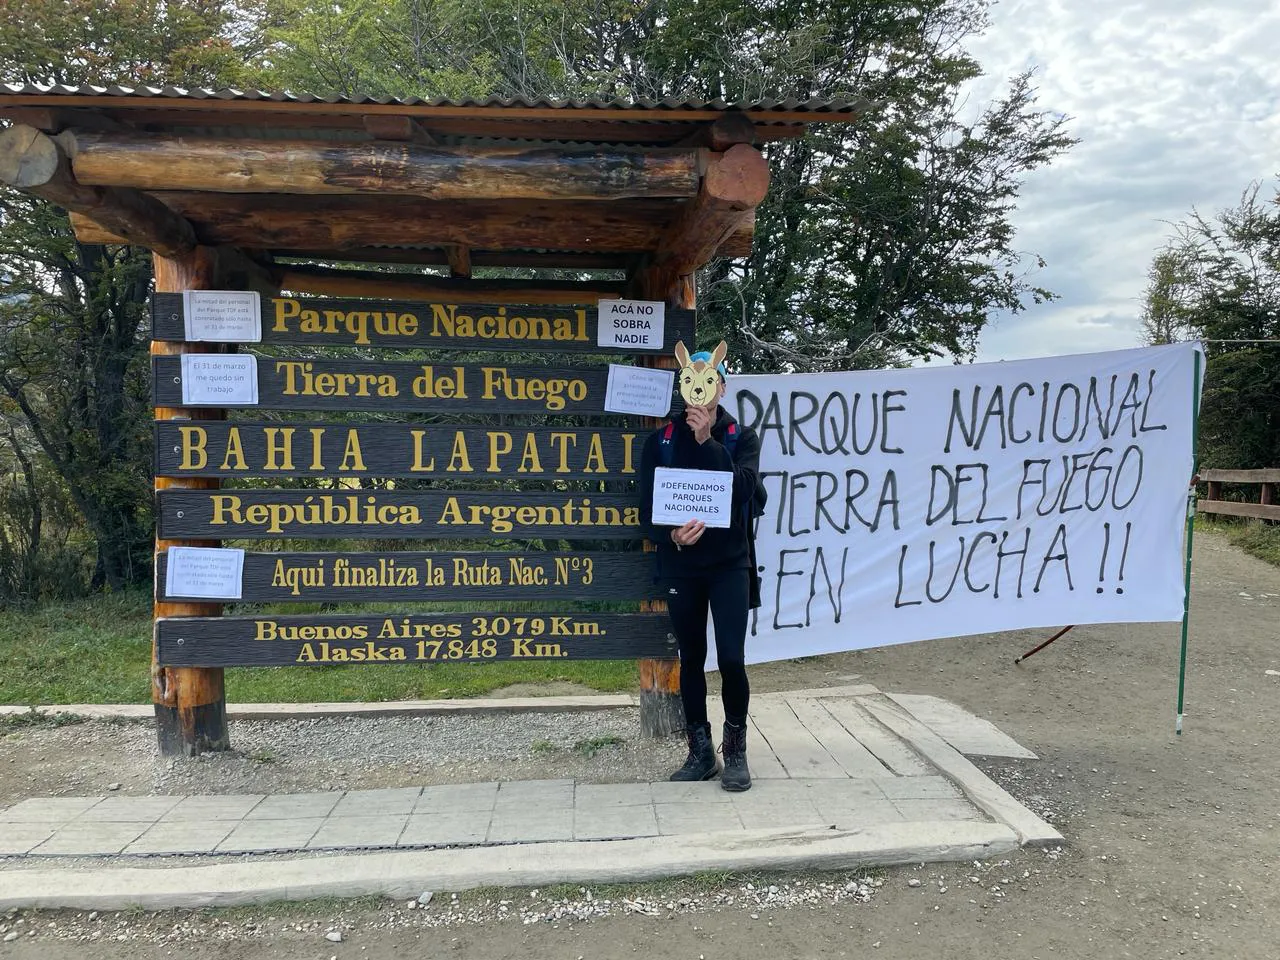 La mitad del personal
del Parque TDF está
contratado sólo hasta
el 31 de marzo
Parque Nacional
ACÁ NO
SOBRA
NADIE
El 31 de marzo
me quedo sin
trabajo
Tierra del Fuego
¿Cómo se
garantizará la
preservación de la
flora y fauna?
BAHIA LAPATAI
República Argentina
La mitad del personal
del Parque TDF está
contratado sólo hasta
el 31 de marzo
Aqui finaliza la Ruta Nac. Nº3
Buenos Aires 3.079 Km.
Alaska 17.848 Km.
#DEFENDAMOS
PARQUES
NACIONALES
PARQUE NACIONAL
TIERRA DEL FUEGO
¡EN LUCHA!!